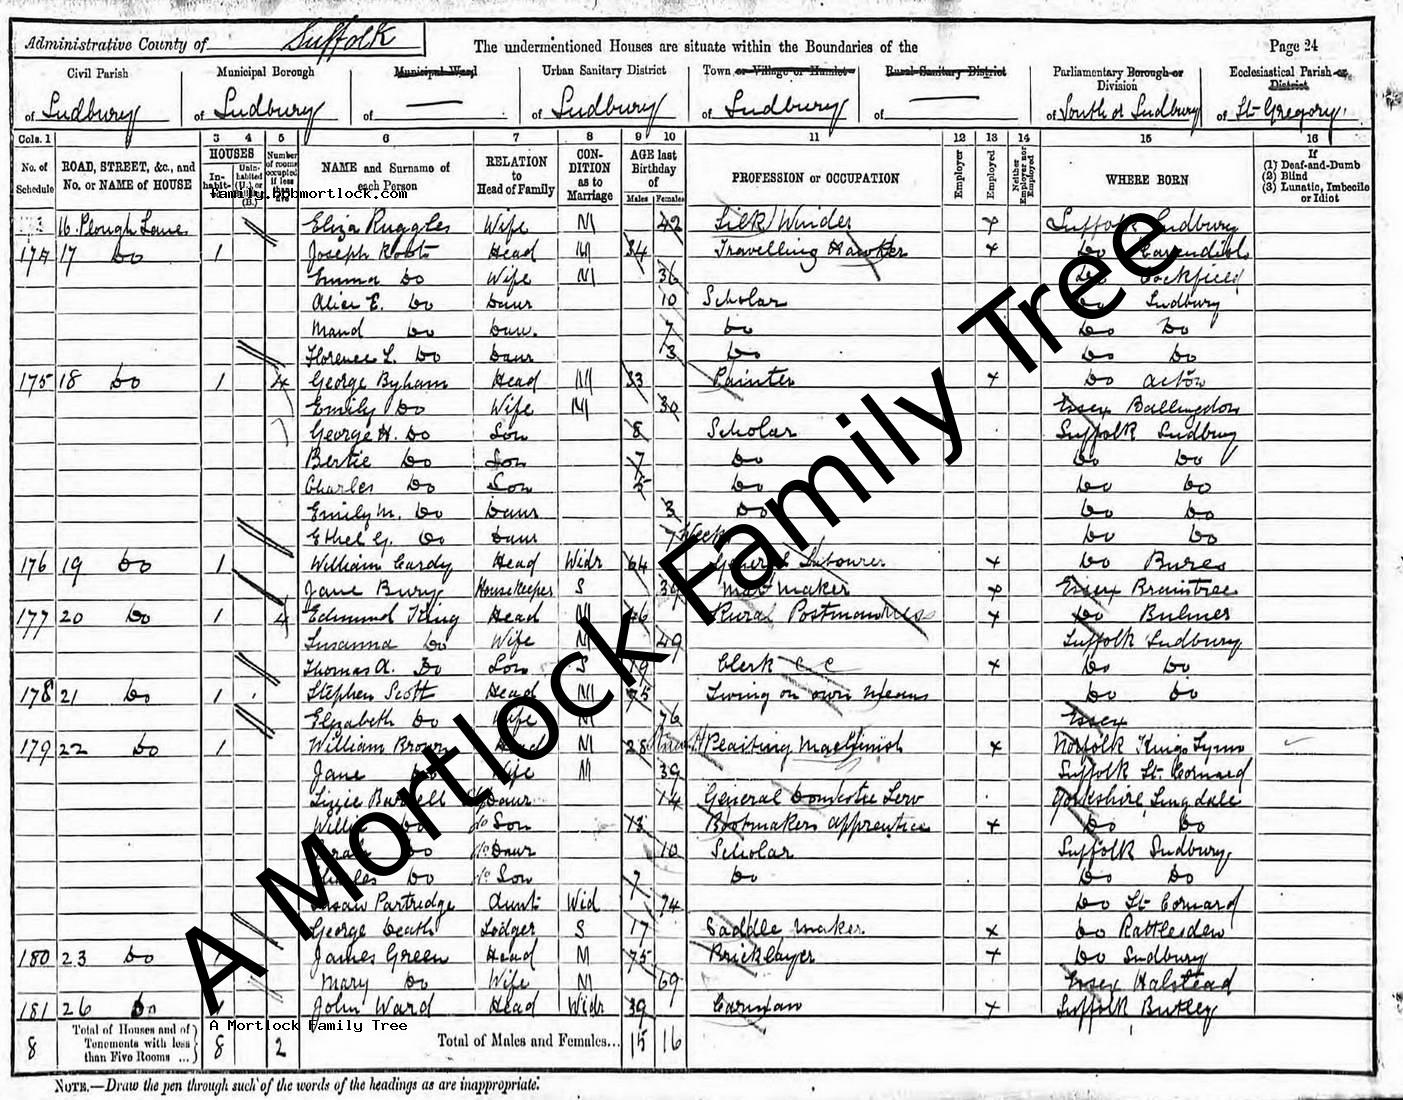 Administrative County of Suffolk The undermentioned Houses are situate within the Boundaries of the Page 24
Civil Parish Municipal Borough Municipal Ward Urban Sanitary District Town or Village or Hamlet Rural Sanitary District Parliamentary Borough or Division Ecclesiastical Parish or District
of Sudbury of Sudbury of — of Sudbury of Sudbury of — of South or Sudbury of St Gregory
Cols. 1 2 3 4 5 6 7 8 9 10 11 12 13 14 15 16
No. of Schedule ROAD, STREET, &c., and No. or NAME of HOUSE HOUSES Inhabited Uninhabited (U.) or Building (B.) Number of rooms occupied if less than five NAME and Surname of each Person RELATION to Head of Family CONDITION as to Marriage AGE last Birthday of Males Females PROFESSION or OCCUPATION Employer Employed Neither Employer nor Employed WHERE BORN If (1) Deaf-and-Dumb (2) Blind (3) Lunatic, Imbecile or Idiot
family.bpbmortlock.com
16 Plough Lane Eliza Ruggles Wife M 42 Silk Winder x Suffolk Sudbury
174 17 Do 1 Joseph Root Head M 34 Travelling Hawker x Do Cavendish
Emma Do Wife M 36 Do Cockfield
Alice E. Do Daur 10 Scholar Do Sudbury
Maud Do Daur. 7 Do Do Do
Florence L. Do Daur 3 Do Do Do
175 18 Do 1 4 George Byham Head M 33 Painter x Do Acton
Emily Do Wife M 30 Essex Ballingdon
George H. Do Son 8 Scholar Suffolk Sudbury
Bertie Do Son 7 Do Do Do
Charles Do Son 5 Do Do Do
Emily M. Do Daur 3 Do Do Do
Ethel G. Do Daur 7 weeks Do Do
176 19 Do 1 William Cardy Head Widr 64 General Labourer x Do Bures
Jane Bury Housekeeper S 39 Mat maker x Essex Braintree
177 20 Do 1 4 Edmund King Head M 46 Rural Postman x Do Bulmer
Susanna Do Wife M 49 Suffolk Sudbury
Thomas A. Do Son S 19 Clerk x Do Do
178 21 Do 1 Stephen Scott Head M 75 Living on own Means Do Do
Elizabeth Do Wife M 76 Essex
179 22 Do 1 William Brown Head M 28 Plaiting Machinist x Norfolk Kings Lynn
Jane Do Wife M 39 Suffolk Gt Cornard
Lizzie Daur 14 General Domestic Serv Yorkshire Lingdale
Willie Do Do Son 13 Bootmakers apprentice x Do Do
Sarah Do Do Daur 10 Scholar Suffolk Sudbury
Charles Do Do Son 7 Do Do Do
Susan Partridge Aunt Wid 74 Do Gt Cornard
George Death Lodger S 17 Saddle Maker x Do Rattlesden
180 23 Do 1 James Green Head M 75 Bricklayer x Do Sudbury
Mary Do Wife M 69 Essex Halstead
181 26 Do 1 John Ward Head Widr 39 Carman x Suffolk Butley
A Mortlock Family Tree
8 Total of Houses and of Tenements with less than Five Rooms ... 8 2 Total of Males and Females... 15 16
NOTE.—Draw the pen through such of the words of the headings as are inappropriate.
A Mortlock Family Tree